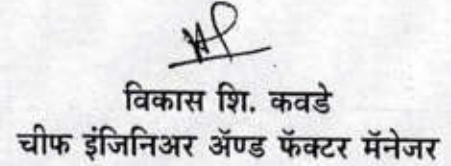 विकास शि. कवडे
चीफ इंजिनिअर ॲण्ड फॅक्टर मॅनेजर